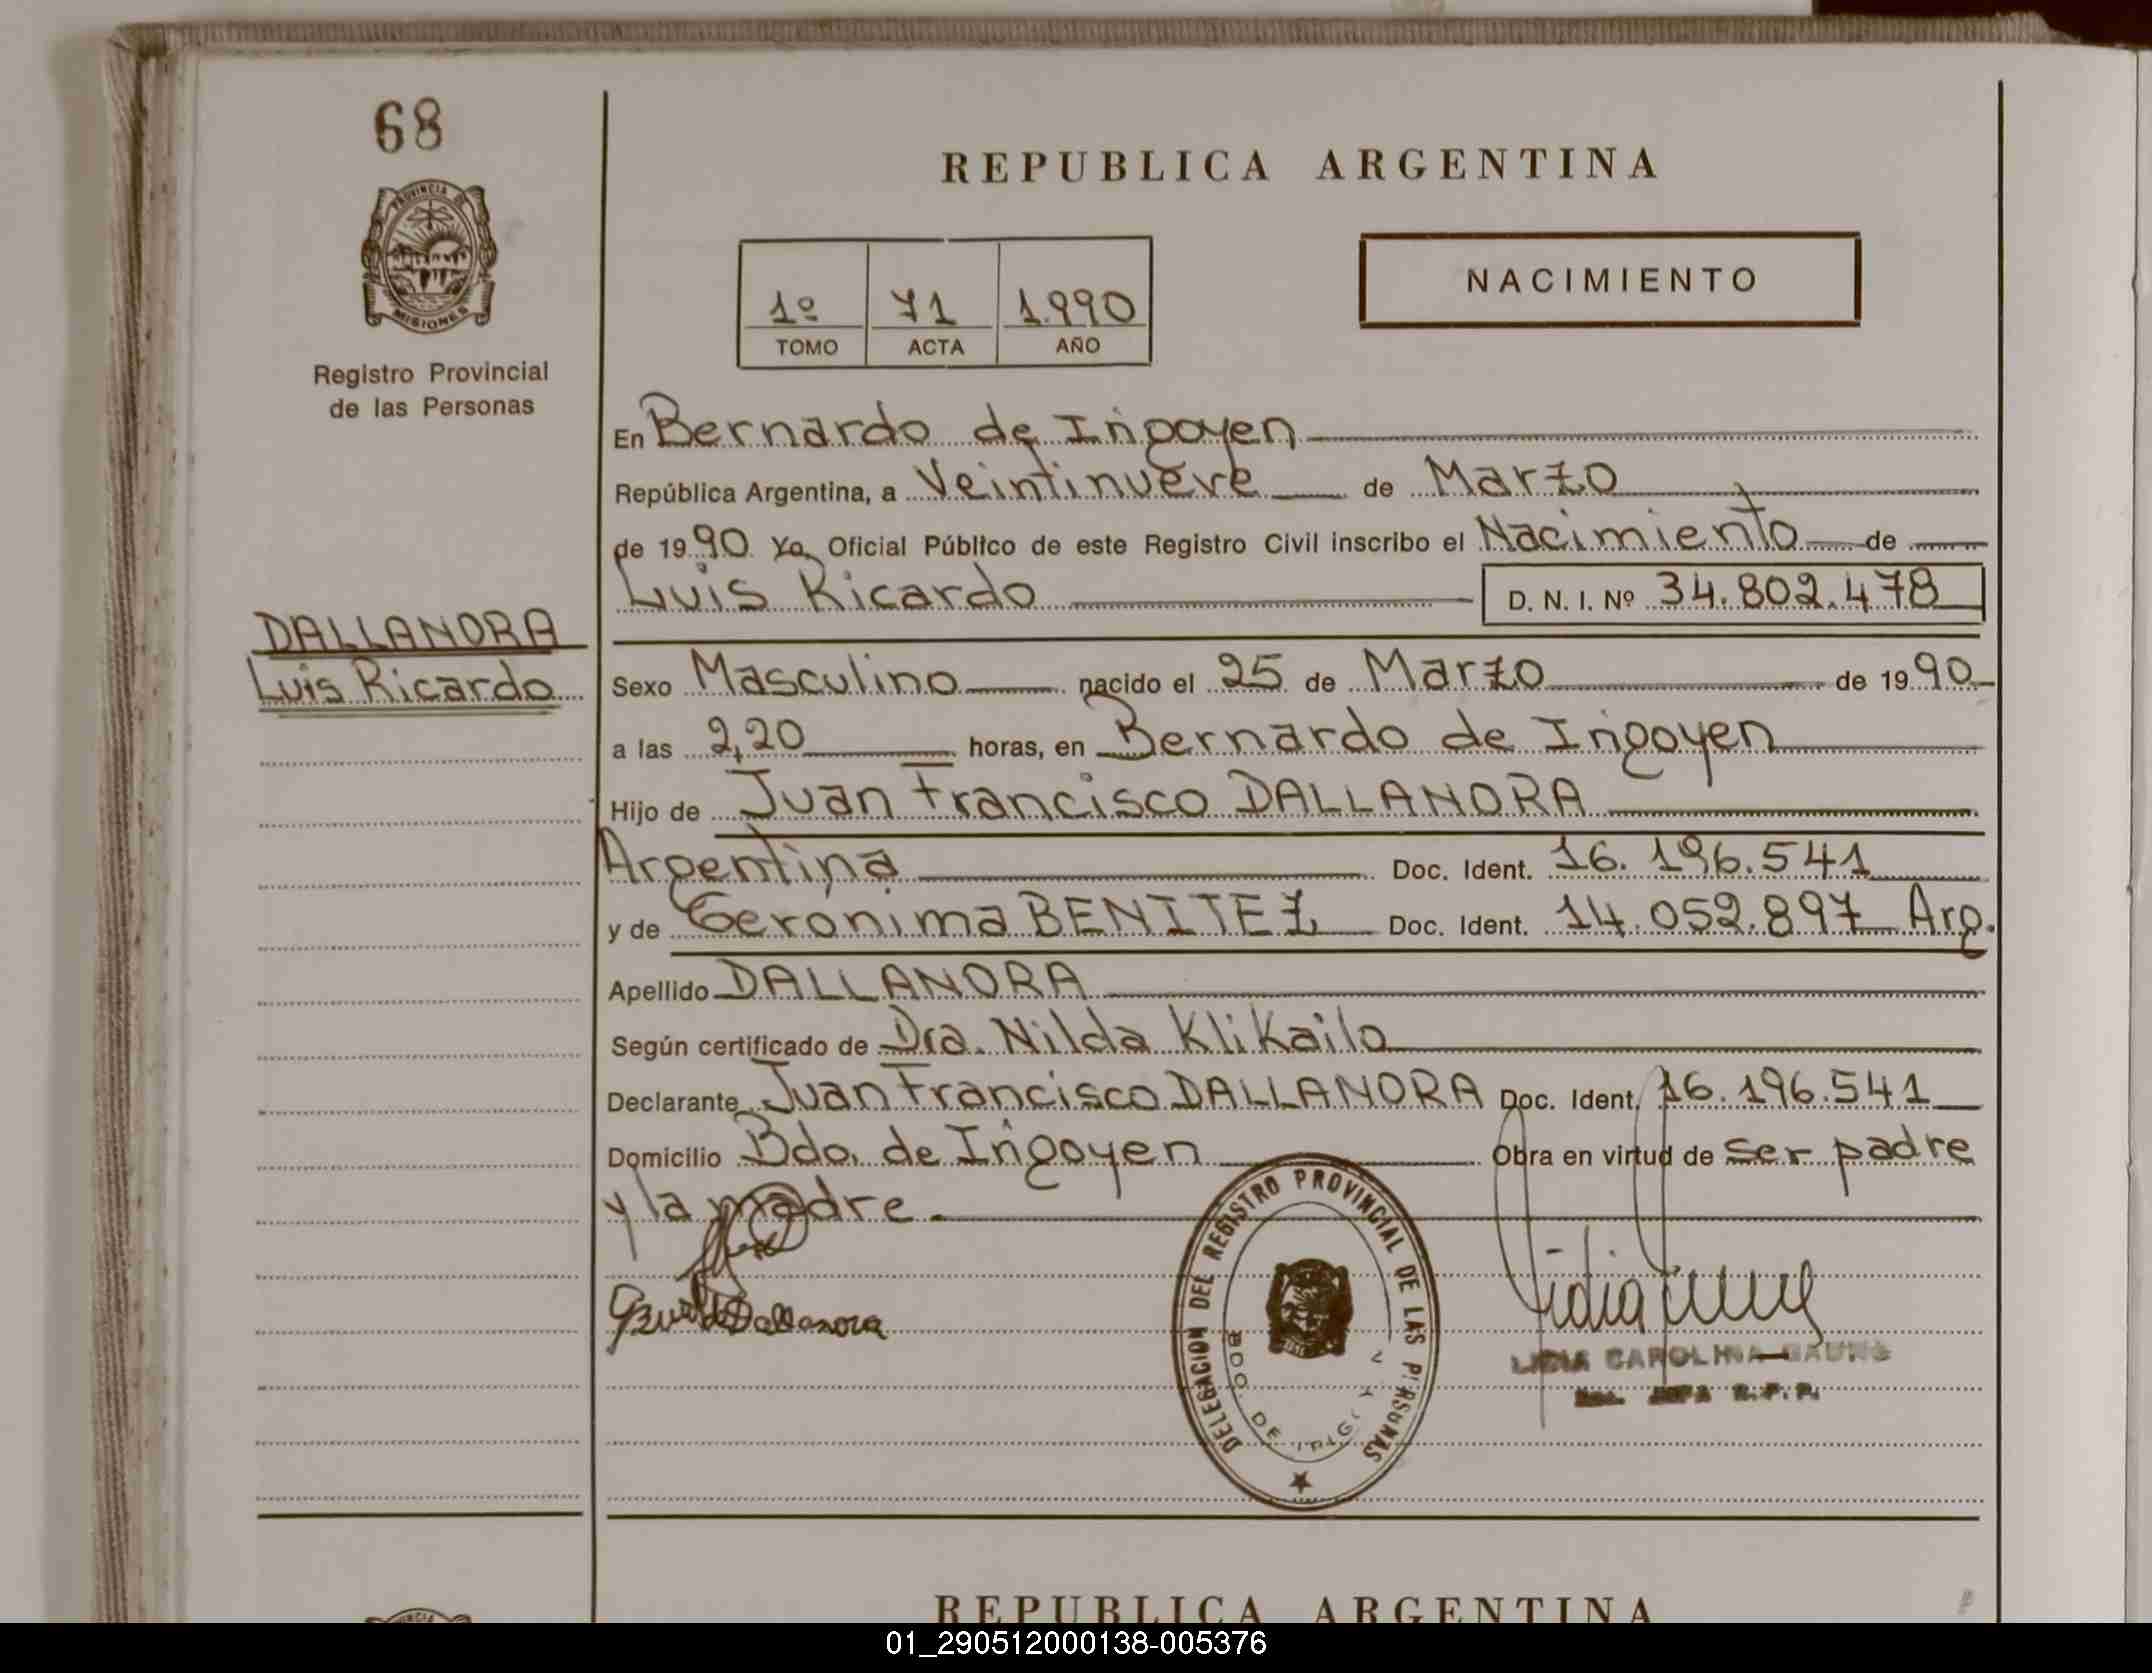 68
PROVINCIA DE
MISIONES
Registro Provincial
de las Personas
DALLANORA
Luis Ricardo
REPUBLICA ARGENTINA
NACIMIENTO
1º 71 1.990
TOMO ACTA AÑO
En Bernardo de Irigoyen
República Argentina, a Veintinueve de Marzo
de 1990 Yo, Oficial Público de este Registro Civil inscribo el Nacimiento de
Luis Ricardo D. N. I. Nº 34.802.478
Sexo Masculino nacido el 25 de Marzo de 1990
a las 2,20 horas, en Bernardo de Irigoyen
Hijo de Juan Francisco DALLANORA
Argentina Doc. Ident. 16.196.541
y de Gerónima BENITEZ Doc. Ident. 14.052.897 Arg.
Apellido DALLANORA
Según certificado de Dra. Nilda Klikailo
Declarante Juan Francisco DALLANORA Doc. Ident. 16.196.541
Domicilio Bdo. de Irigoyen Obra en virtud de ser padre
y la madre.
Dallanora
DELEGACION DEL REGISTRO PROVINCIAL DE LAS PERSONAS
BDO. DE IRIGOYEN
Lidia
LIDIA CAROLINA
JEFA R.P.P.
REPUBLICA ARGENTINA
01_290512000138-005376